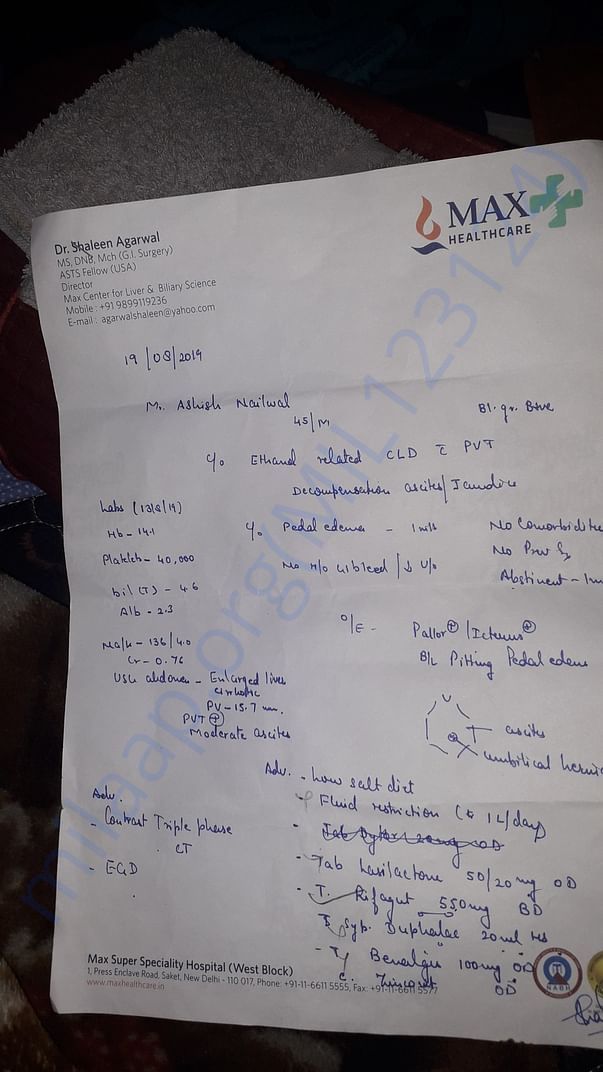 MAX
HEALTHCARE
Dr. Shaleen Agarwal
MS, DNB, Mch (G.I. Surgery)
ASTS Fellow (USA)
Director
Max Center for Liver & Biliary Science
Mobile : +91 9899119236
E-mail : agarwalshaleen@yahoo.com
19/08/2019
Mr. Ashish Nailwal
45/M
Bl. gr. B+ve
c/o Ethanol related CLD c̄ PVT
Decompensation ascites/Jaundice
Labs (13/8/19)
Hb - 14.1
Platelet - 40,000
bil (T) - 4.6
Alb - 2.3
Na/K - 136/4.0
Cr - 0.76
USG abdomen - Enlarged liver
cirrhotic
PV - 15.7 mm.
PVT ⊕
Moderate ascites
c/o Pedal edema - 1
No H/o UGI bleed/↓ U/o
No Comorbidities
No Prev Sx
Abstinent - 1
O/E - Pallor ⊕ /Icterus ⊕
B/L Pitting Pedal edema
ascites
umbilical hernia
Adv.
- Contrast Triple phase
CT
- EGD
Adv. - Low salt diet
- Fluid restriction ( 1L/day)
- Tab Lasilactone 50/20 mg OD
- T. Rifagut 550mg BD
Syp. Duphalac 20ml HS
- T. Benalgis 100mg OD
C. OD
Max Super Speciality Hospital (West Block)
1, Press Enclave Road, Saket, New Delhi - 110 017, Phone: +91-11-6611 5555, Fax: +91-11-6611 5577
www.maxhealthcare.in
NABH
milaap.org(MIL123124)